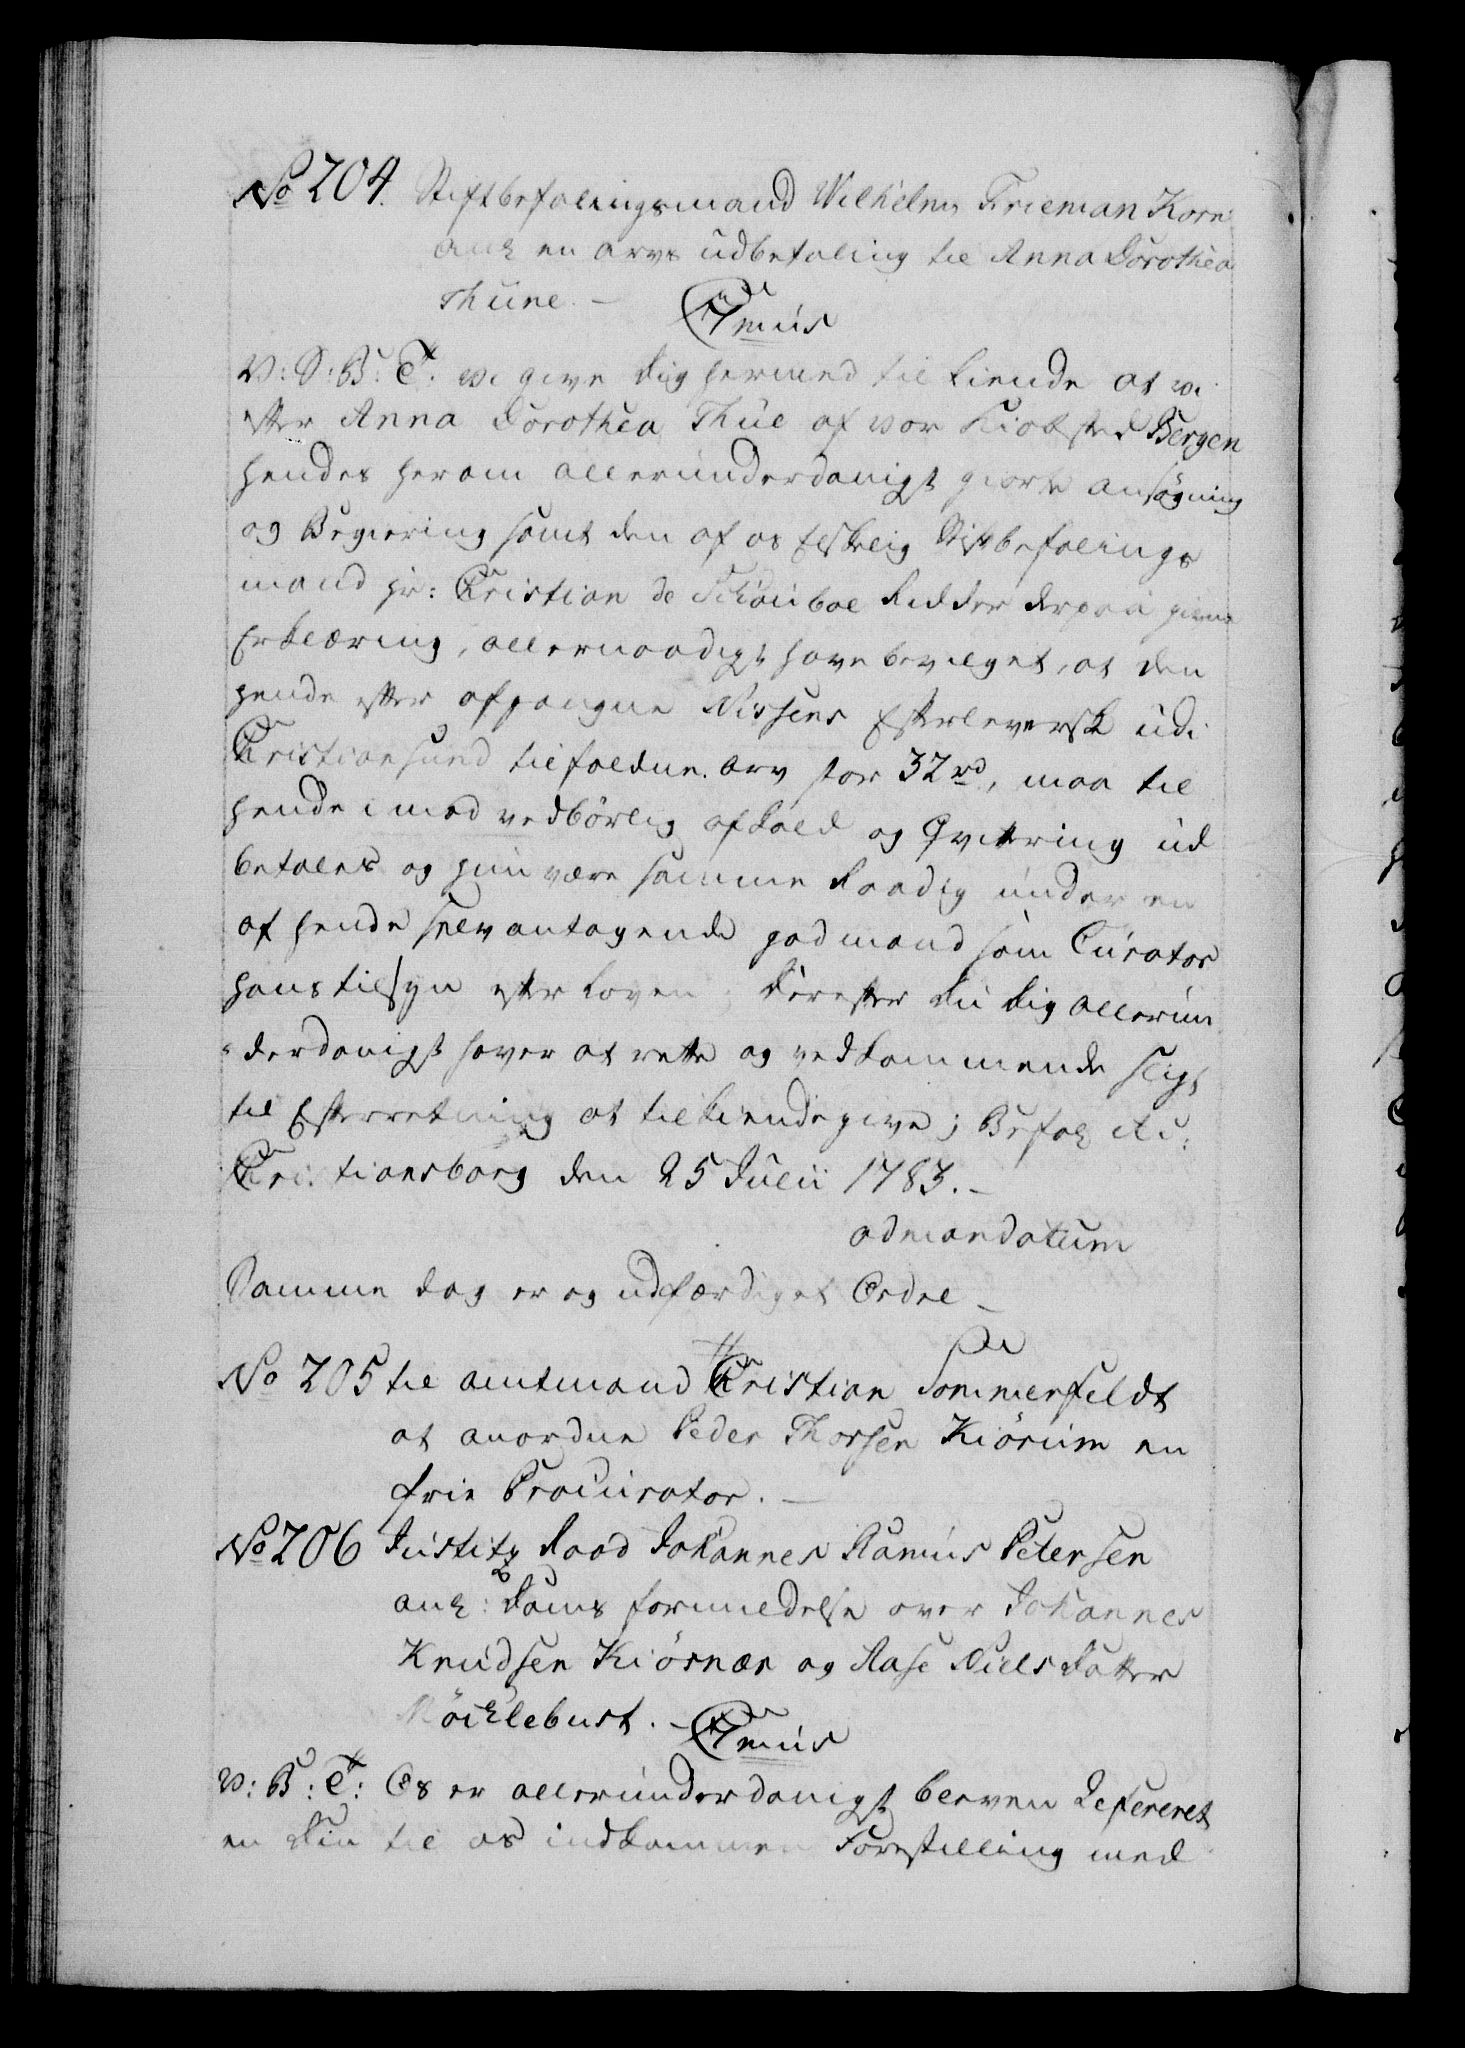 No 204. Stiftbefalingsmand Wilhelm Frieman Kore
ank en arvs udbetaling til Anna Dorothea
Thüne. —
C 7mus
V: S: B: T: vi give dig hermed tilkiende at vi
efter Anna Dorothea Thüe af vor Kiøbsted Bergen
hendes herom allerunderdanigst giorte ansøgning
og Begiering samt den af os Elskelig Stiftbefalings
mand hr: Cristian de Schouboe Ridder derpaa givne
Erklæring, allernaadigst have bevilget, at den
hende efter afgangne Nissens Efterleverske udi
Cristiansund tilfaldne arv stor 32 rd, maa til
hende imod vedbørlig afkald og Qvittering ud
betales og hun være samme Raadig under en
af hende selv antagende god mand som Curator
hans tilsyn efter Loven; Derefter du dig allerun
derdanigst haver at rette og vedkommende sligt
til Efterretning at tilkiendegive; Befal etc:
Cristiansborg den 25 Julii 1783. —
ad mandatum
Samme dag er og udfærdiget Ordre —
No 205 til amtmand Cristian Sommerfeldt
at anordne Peder Thorsen Kiörum en
frie Procurator. —
No 206 Justitz Raad Johannes Ramus Petersen
ank: Doms formildelse over Johannes
Knudsen Kiörnær og Aase Niels Datter
Möcklebust. — C 7mus
V: B: T: Os er allerunderdanigst bleven Refereret
en din til os indkommen Forestilling med